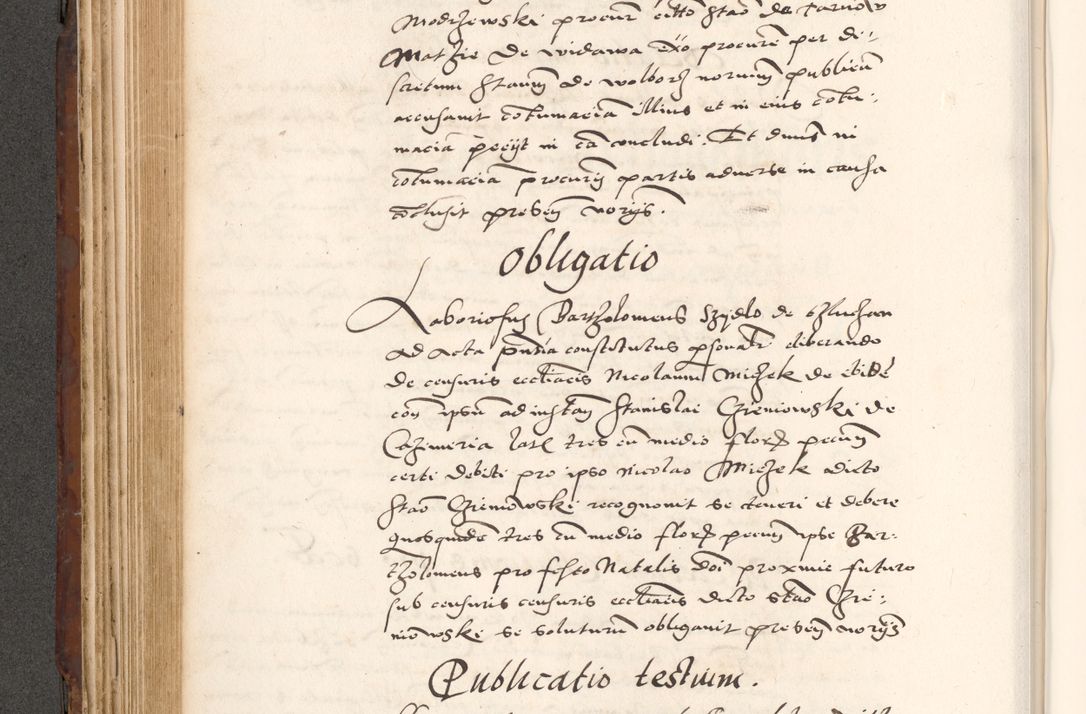 Modrzewski procur citto Stao de Tarnow
Mathie de widawa exo procure per di-
scretum Stanm de wolborz norium publicum
accusavit cotumacia illius et in eius cotu-
macia petijt in ca concludi. Et dnus in
cotumacia procuris partis adverse in causa
coclusit presen norijs.
Obligatio
Laboriosus Bartholomeus Szydlo de
ad acta pntia constitutus psonalr liberando
de censuris ecctiacis Nicolaum Michek de ibide
con ipsu ad instan Stanislai Czeniowski de
Cazimeria lat tres cu medio flor pecun
certi debiti pro ipso Nicolao Michek dicto
Stao Czeniowski recognovit se teneri et debere
quosquide tres cu medio flor pecun ipse Bar-
tholomeus pro festo Natalis doi proxime futuro
sub censuris censuris ecctiacis dicto Stao Cze-
niowski se soluturum obligavit presen norijs
Publicatio testium.